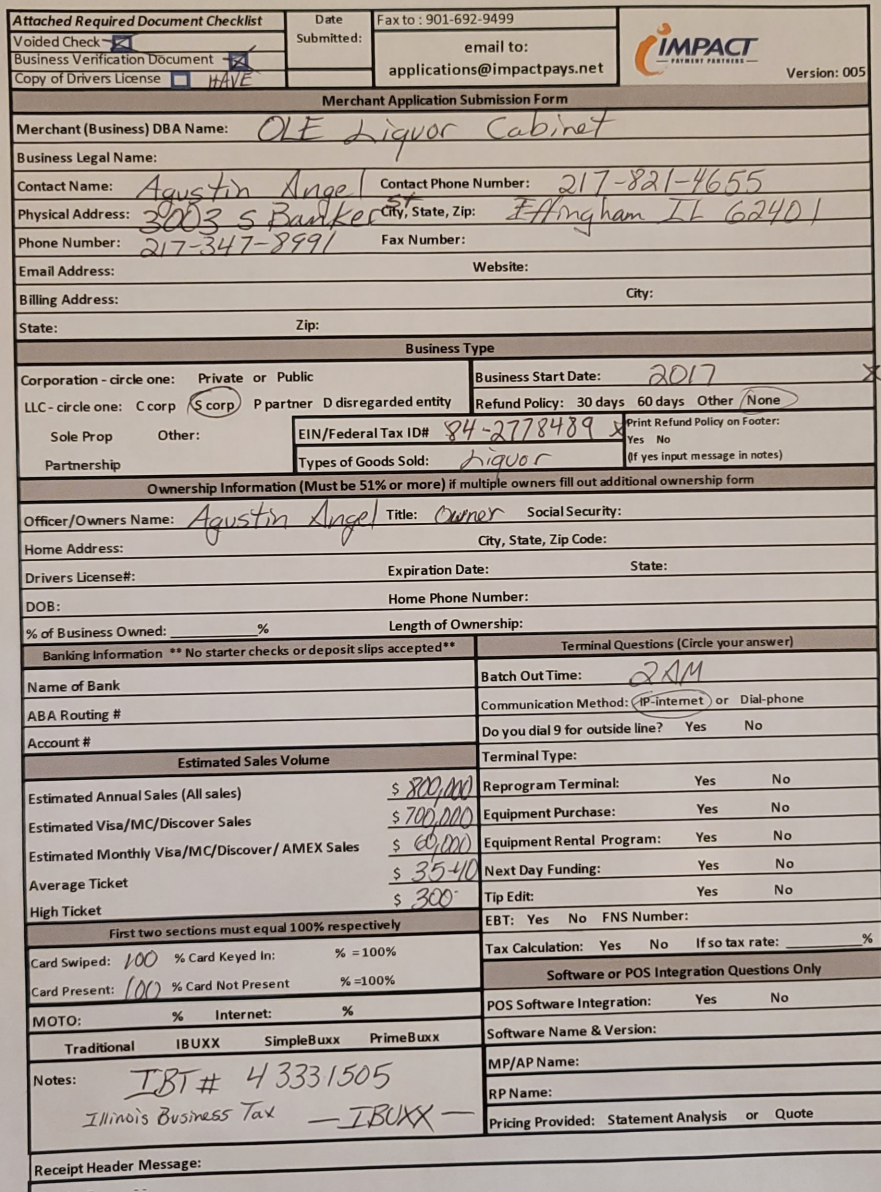 Attached Required Document Checklist
Voided Check
Business Verification Document
Copy of Drivers License HAVE
Date Submitted:
Fax to : 901-692-9499
email to:
applications@impactpays.net
IMPACT
PAYMENT PARTNERS
Version: 005
Merchant Application Submission Form
Merchant (Business) DBA Name: OLE Liquor Cabinet
Business Legal Name:
Contact Name: Agustin Angel Contact Phone Number: 217-821-4655
Physical Address: 3003 S Banker St City, State, Zip: Effingham IL 62401
Phone Number: 217-347-8991 Fax Number:
Email Address: Website:
Billing Address: City:
State: Zip:
Business Type
Corporation - circle one: Private or Public
LLC - circle one: C corp S corp P partner D disregarded entity
Sole Prop Other:
Partnership
Business Start Date: 2017 X
Refund Policy: 30 days 60 days Other None
EIN/Federal Tax ID# 84-2778489 x
Print Refund Policy on Footer:
Yes No
(If yes input message in notes)
Types of Goods Sold: Liquor
Ownership Information (Must be 51% or more) if multiple owners fill out additional ownership form
Officer/Owners Name: Agustin Angel Title: Owner Social Security:
Home Address: City, State, Zip Code:
Drivers License#: Expiration Date: State:
DOB: Home Phone Number:
% of Business Owned: ________% Length of Ownership:
Banking Information ** No starter checks or deposit slips accepted**
Name of Bank
ABA Routing #
Account #
Estimated Sales Volume
Estimated Annual Sales (All sales) $ 800,000
Estimated Visa/MC/Discover Sales $ 700,000
Estimated Monthly Visa/MC/Discover/ AMEX Sales $ 60,000
Average Ticket $ 35-40
High Ticket $ 300-
First two sections must equal 100% respectively
Card Swiped: 100 % Card Keyed In: % =100%
Card Present: 100 % Card Not Present % =100%
MOTO: % Internet: %
Traditional IBUXX SimpleBuxx PrimeBuxx
Notes: IBT# 43331505
Illinois Business Tax — IBUXX —
Receipt Header Message:
Terminal Questions (Circle your answer)
Batch Out Time: 2AM
Communication Method: IP-internet or Dial-phone
Do you dial 9 for outside line? Yes No
Terminal Type:
Reprogram Terminal: Yes No
Equipment Purchase: Yes No
Equipment Rental Program: Yes No
Next Day Funding: Yes No
Tip Edit: Yes No
EBT: Yes No FNS Number:
Tax Calculation: Yes No If so tax rate: ________%
Software or POS Integration Questions Only
POS Software Integration: Yes No
Software Name & Version:
MP/AP Name:
RP Name:
Pricing Provided: Statement Analysis or Quote